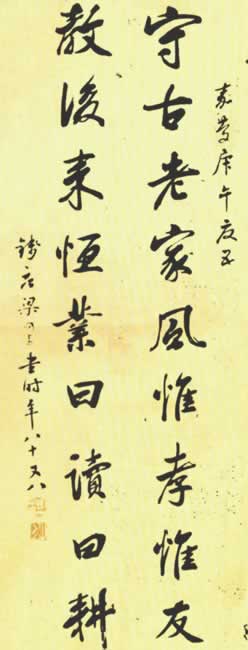 嘉慶庚午夏五
守古老家風惟孝惟友
教後来恒業曰讀曰耕
錢唐梁同書時年八十又八